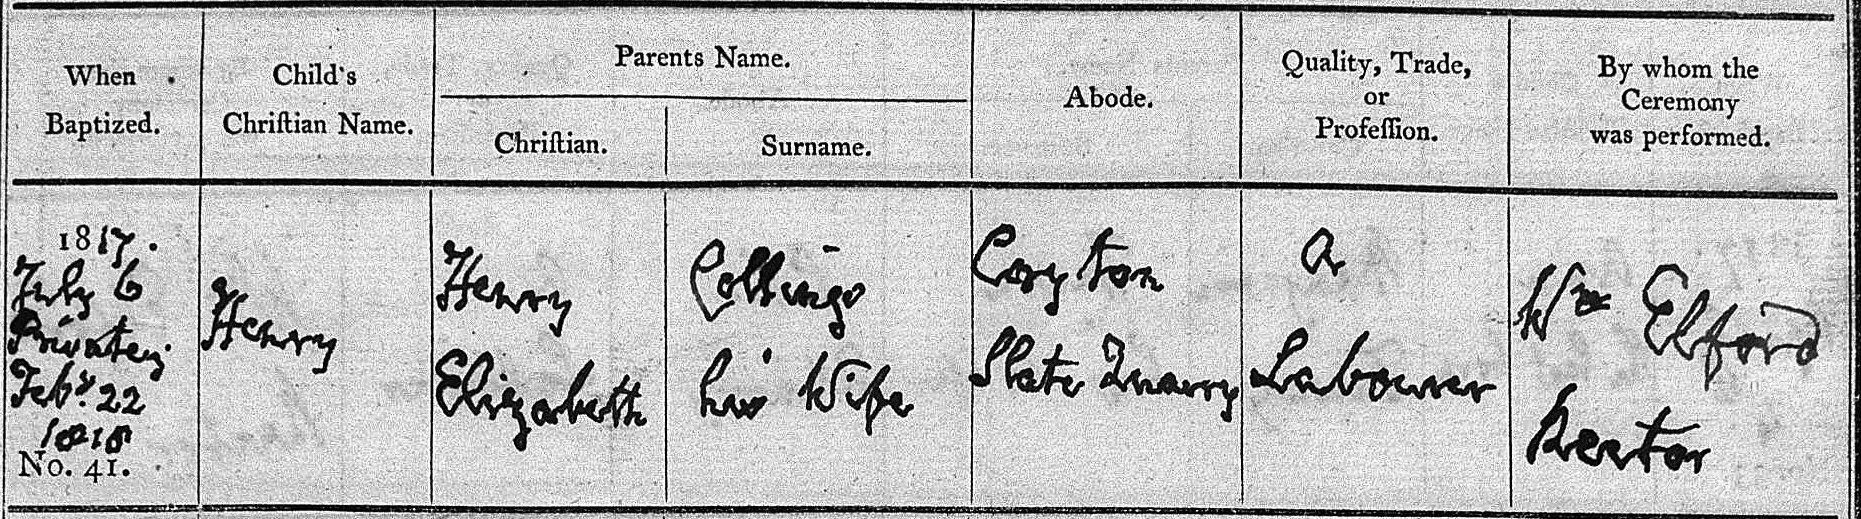 When
Baptized.
Child's
Chriſtian Name.
Parents Name.
Chriſtian.
Surname.
Abode.
Quality, Trade,
or
Profeſſion.
By whom the
Ceremony
was performed.
1817.
July 6
Privately
Feby. 22
1818
No. 41.
Henry
Henry
Elizabeth
Collings
his Wife
Coryton
Slate Quarry
A
Labourer
Wm Elford
Rector